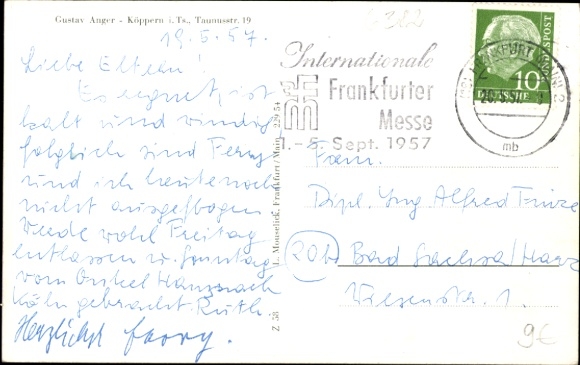 Gustav Anger - Köppern i. Ts., Taunusstr. 19
19.5.57.
Liebe Eltern!
Es regnet, ist
kalt und windig
folglich sind Ferry
und ich heute noch
nicht ausgeflogen.
Werde wohl Freitag
entlassen u. Sonntag
vom Onkel Hans nach
Köln gebracht. Ruth.
Herzlichst Ferry.
L. Mouselick, Frankfurt/Main 229 54
Z 58
Internationale
Frankfurter
Messe
1.-5. Sept. 1957
mb
10
DEUTSCHE BUNDESPOST
Fam.
Dipl. Ing. Alfred
20b Bad Sachsa/Harz
Wiesenstr. 1.
9€